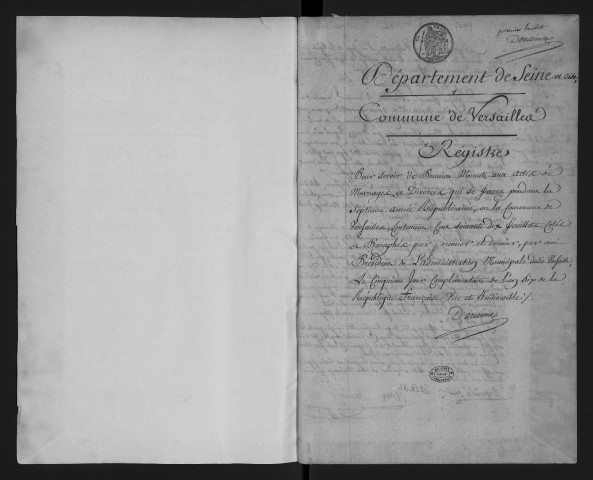 premier feuillet
Département de Seine et Oise,
Commune de Versailles
Régistre
Pour servir de Premiere Minute aux Actes de
Mariages et Divorces qui se feront pendant la
Septieme année Républicaine, en la Commune de
Versailles, Contenant Cent soixante dix feuillets Cottés
et Paraphés, par premier et dernier, par moi
Président de L'administration Municipale dudit Versailles
Le Cinquieme Jour Complémentaire de L'an Six de la
République Française Une et Indivisible /.